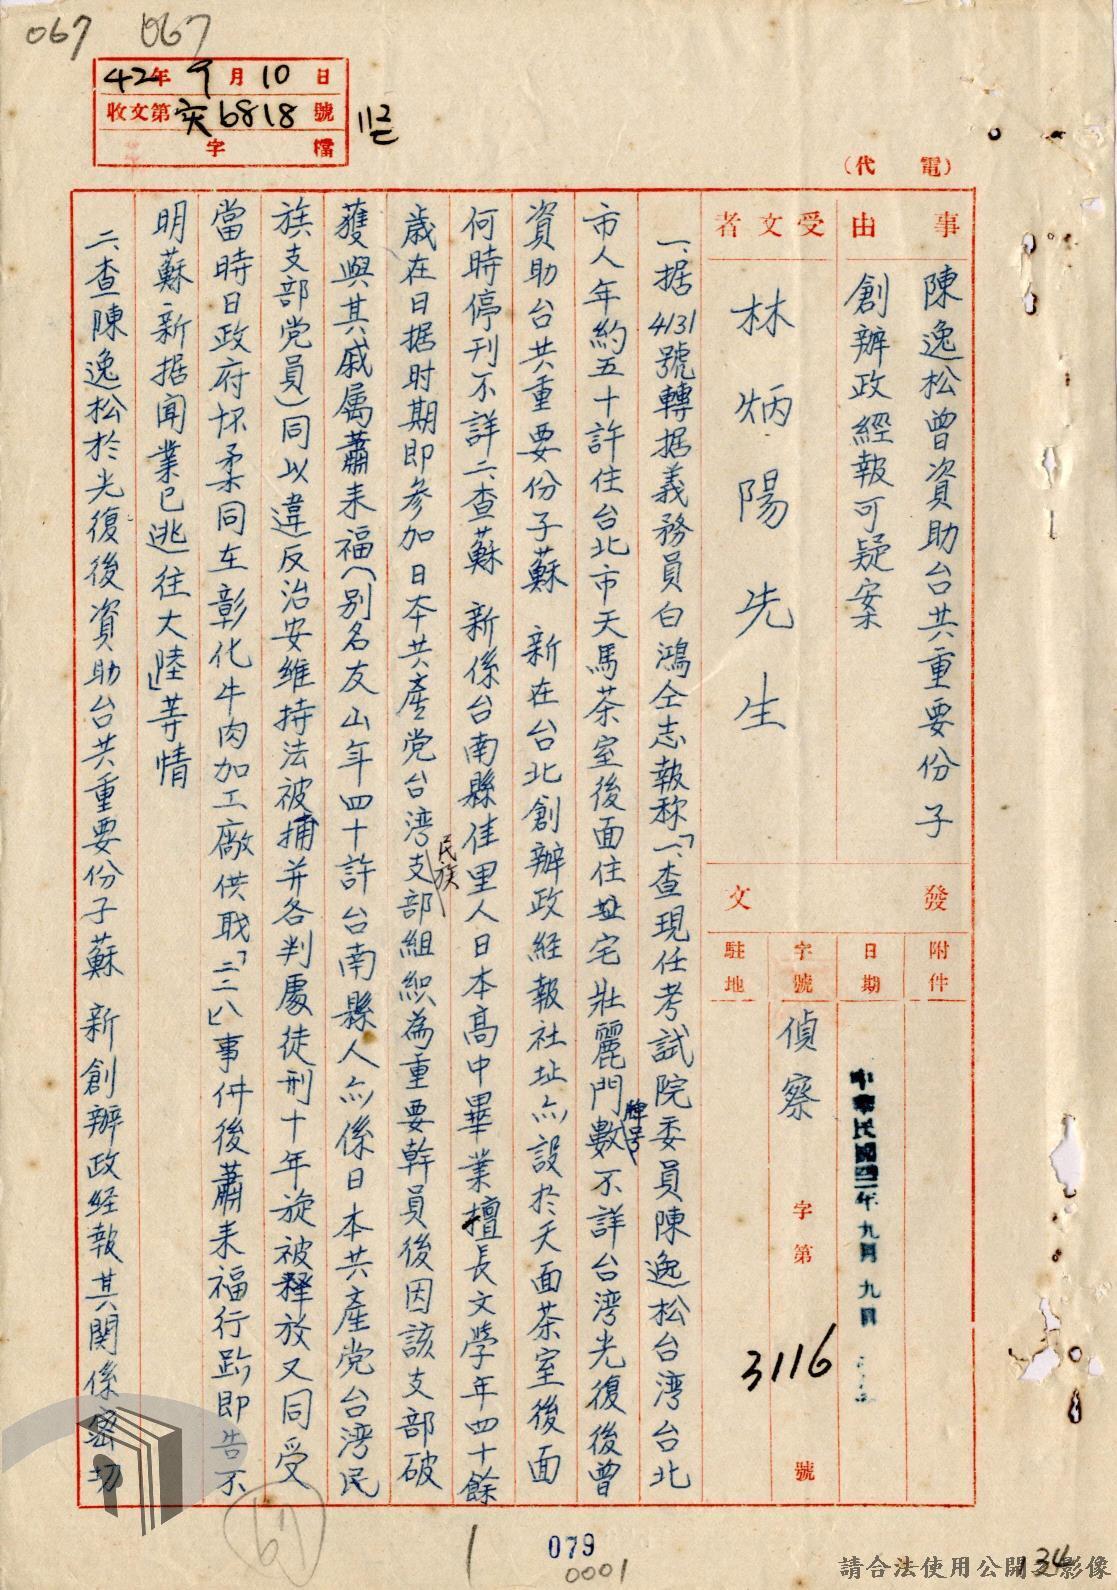 067 067
42年9月10日
收文第 6818 號
字 檔
(代電)
事由
陳逸松曾資助台共重要份子
創辦政經報可疑案
受文者
林炳陽先生
發文
附件
日期
中華民國四二年九月九日
字號
偵察字第3116號
駐地
一、据4131號轉据義務員白鴻仝志報称「一、查現任考試院委員陳逸松台湾台北
市人年約五十許住台北市天馬茶室後面住址宅壯麗門牌号數不詳台湾光復後曾
資助台共重要份子蘇 新在台北創辦政経報社址亦設於天面茶室後面
何時停刊不詳二查蘇 新係台南縣佳里人日本高中畢業擅長文学年四十餘
歲在日据时期即参加日本共產党台湾民族支部組織為重要幹員後因該支部破
獲與其戚属蕭来福(別名友山年四十許台南縣人亦係日本共產党台湾民
族支部党員)同以違反治安維持法被捕并各判處徒刑十年旋被释放又同受
當時日政府怀柔同在彰化牛肉加工廠供职「二二八」事件後蕭来福行踪即告不
明蘇新据聞業已逃往大陸」等情
二、查陳逸松於光復後資助台共重要份子蘇 新創辦政経報其関係密切
079
0001
134
請合法使用公開之影像